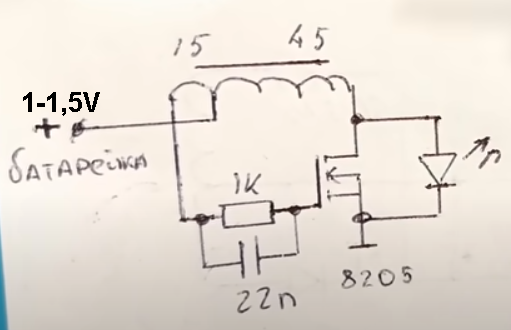 15 45
1-1,5V
+
БАТАРЕЙКА
1К
К
n
22n
8205